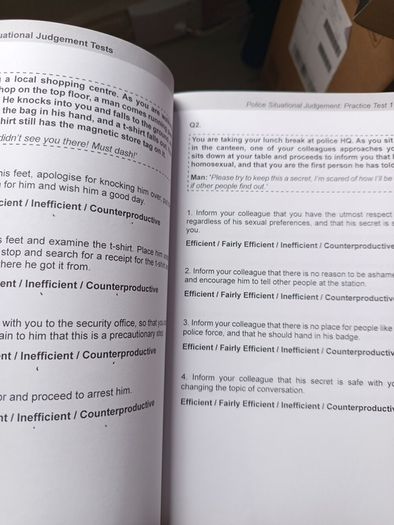 Situational Judgement Tests
a local shopping centre. As you are
shop on the top floor, a man comes running
He knocks into you and falls to the ground
the bag in his hand, and a t-shirt falls out
shirt still has the magnetic store tag on it.
didn't see you there! Must dash!'
his feet, apologise for knocking him over
for him and wish him a good day.
/ Inefficient / Counterproductive
feet and examine the t-shirt. Place him
stop and search for a receipt for the t-shirt
where he got it from.
/ Inefficient / Counterproductive
with you to the security office, so that you
to him that this is a precautionary step.
/ Inefficient / Counterproductive
or and proceed to arrest him.
/ Inefficient / Counterproductive
Police Situational Judgement: Practice Test 1
Q2.
You are taking your lunch break at police HQ. As you sit
in the canteen, one of your colleagues approaches
sits down at table and proceeds to inform you that
homosexual, and that you are the first person he has told
Man: 'Please try to keep this a secret, I'm scared of how I'll be
if other people find out.'
1. Inform your colleague that you have the utmost respect
regardless of his sexual preferences, and that his secret is
you.
Efficient / Fairly Efficient / Inefficient / Counterproductive
2. Inform your colleague that there is no reason to be ashamed
and encourage him to tell other people at the station.
Efficient / Fairly Efficient / Inefficient / Counterproductive
3. Inform your colleague that there is no place for people like
police force, and that he should hand in his badge.
Efficient / Fairly Efficient / Inefficient / Counterproductive
4. Inform your colleague that his secret is safe with
changing the topic of conversation.
Efficient / Fairly Efficient / Inefficient / Counterproductive